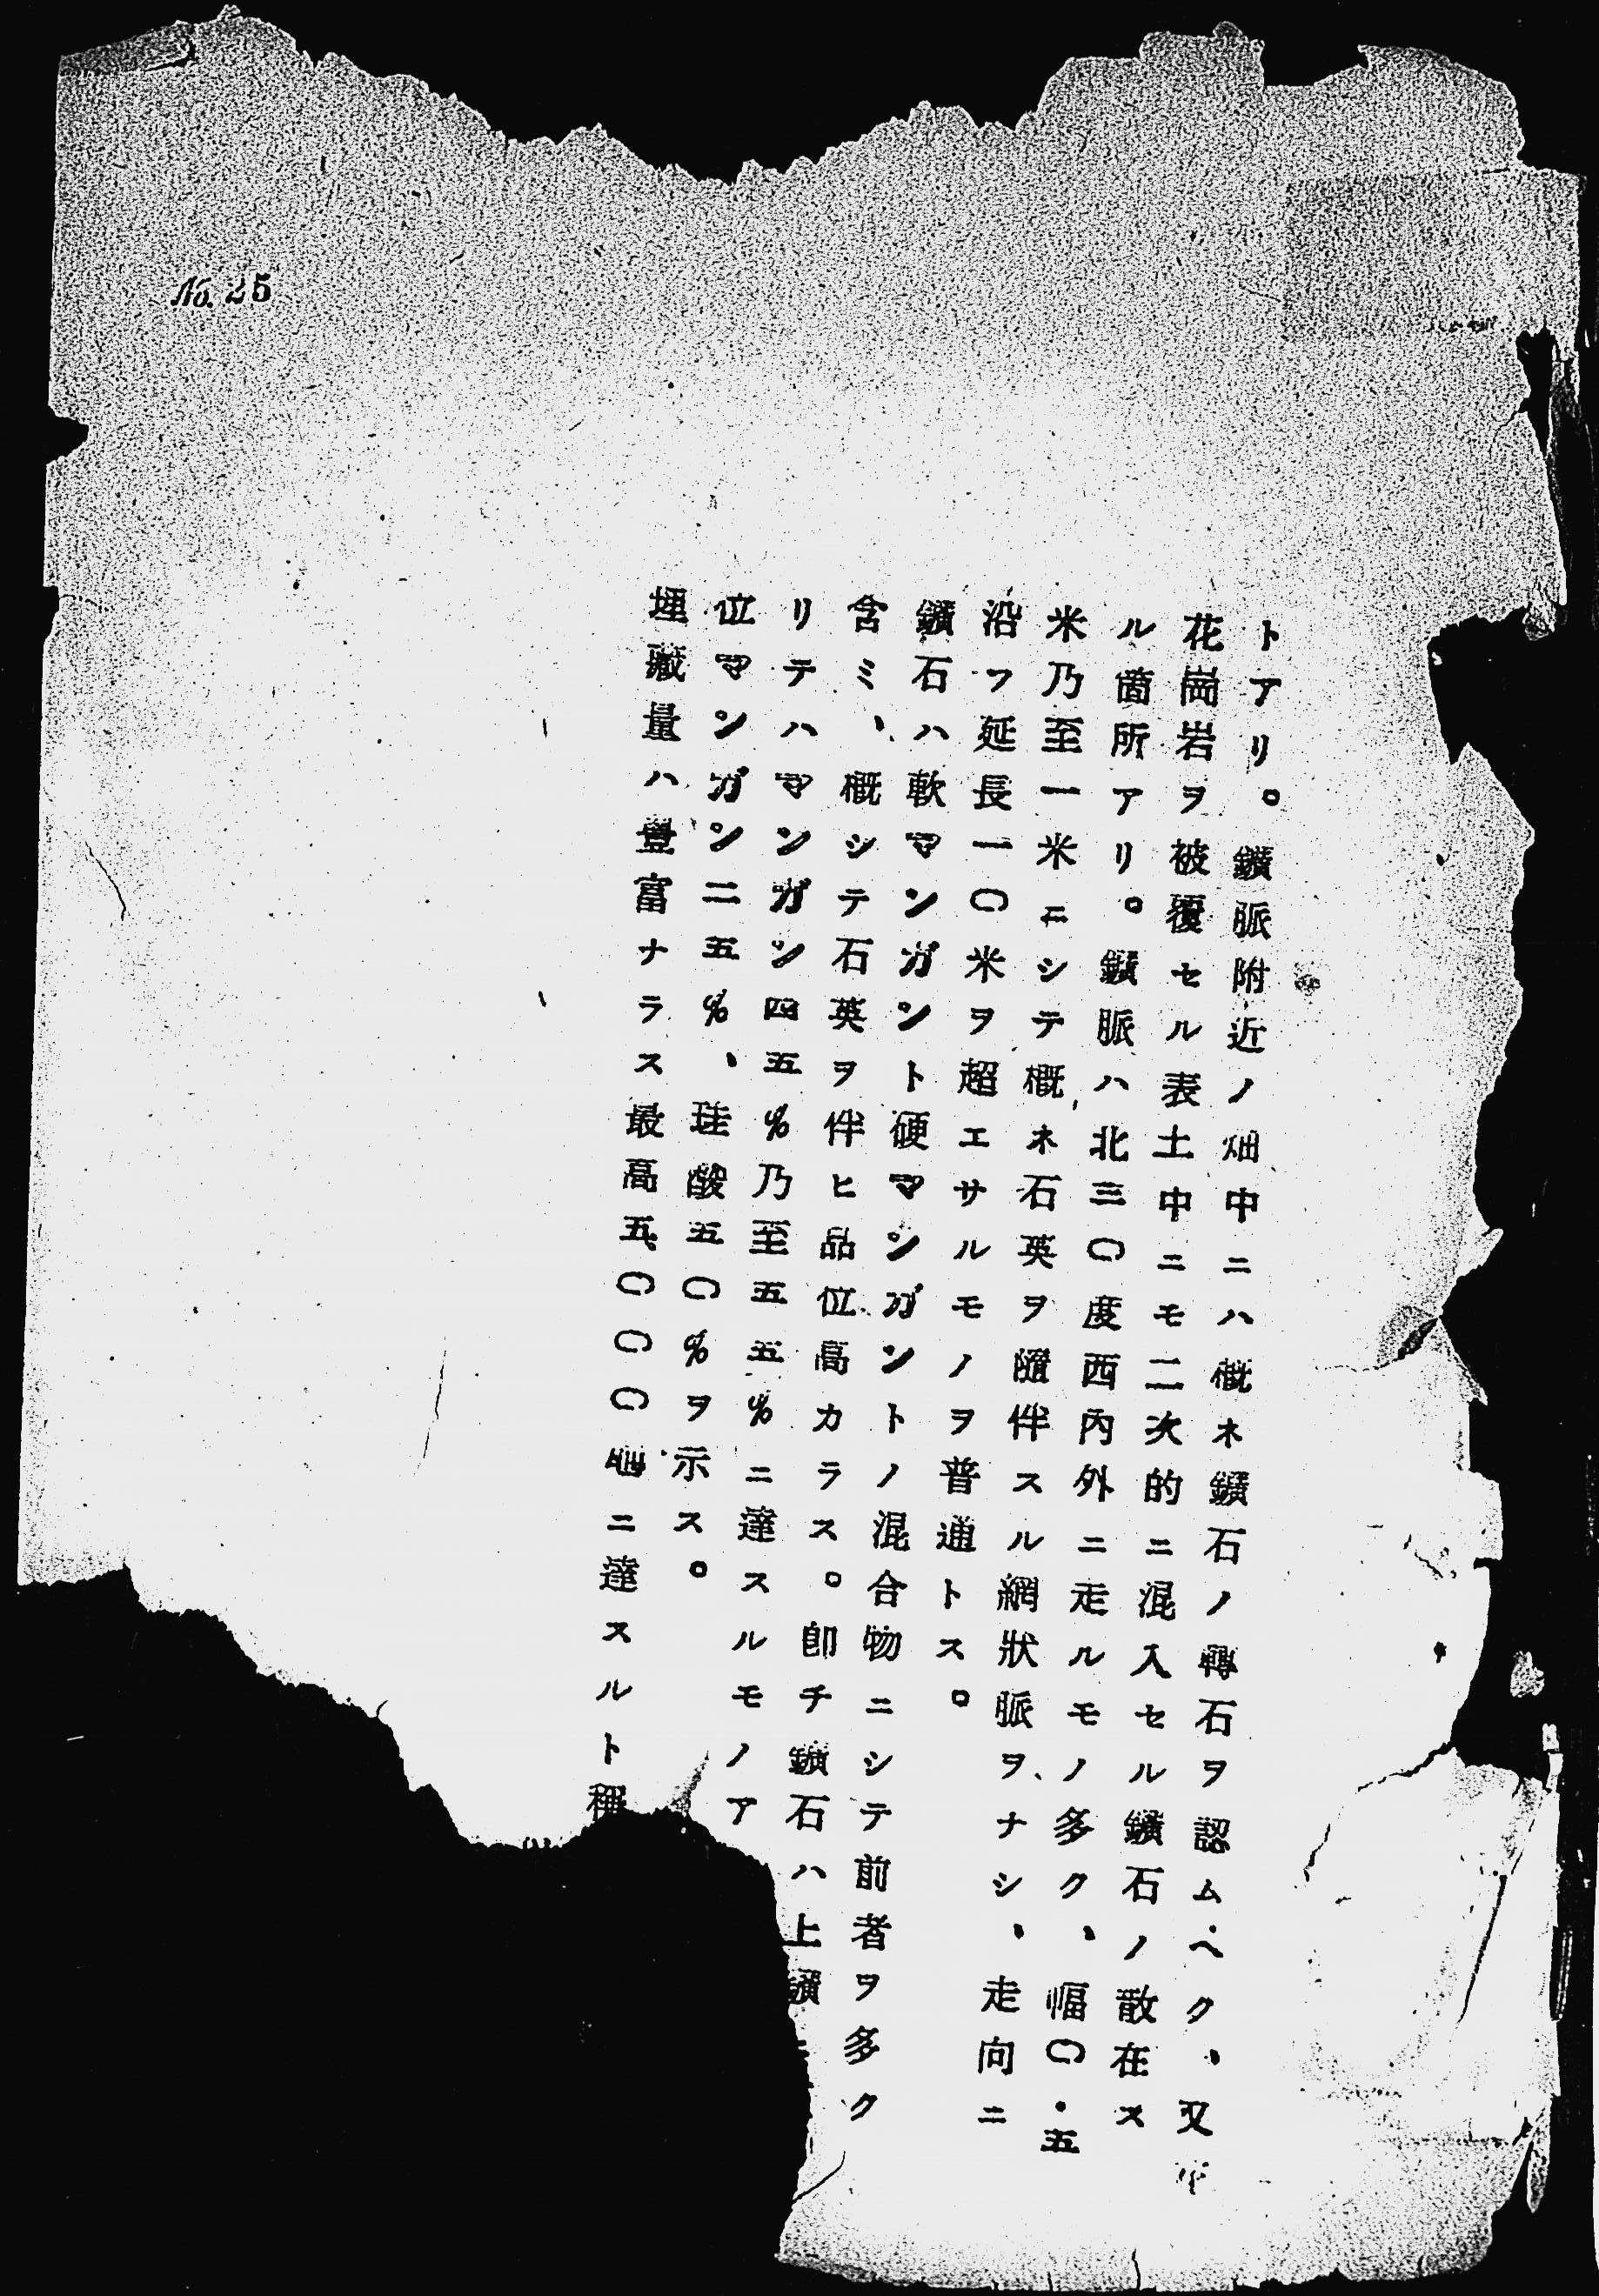 No. 25
トアリ。鑛脈附近ノ畑中ニハ概ネ鑛石ノ轉石ヲ認ムヘク、又
花崗岩ヲ被覆セル表土中ニモ二次的ニ混入セル鑛石ノ散在ス
ル箇所アリ。鑛脈ハ北三〇度西內外ニ走ルモノ多ク、幅〇・五
米乃至一米ニシテ概ネ石英ヲ隨伴スル網狀脈ヲナシ、走向ニ
沿フ延長一〇米ヲ超エサルモノヲ普通トス。
鑛石ハ軟マンガント硬マンガントノ混合物ニシテ前者ヲ多ク
含ミ、概シテ石英ヲ伴ヒ品位高カラス。卽チ鑛石ハ上鑛
リテハマンガン四五％乃至五五％ニ達スルモノア
位マンガン二五％、珪酸五〇％ヲ示ス。
埋藏量ハ豐富ナラス最高五、〇〇〇瓲ニ達スルト稱